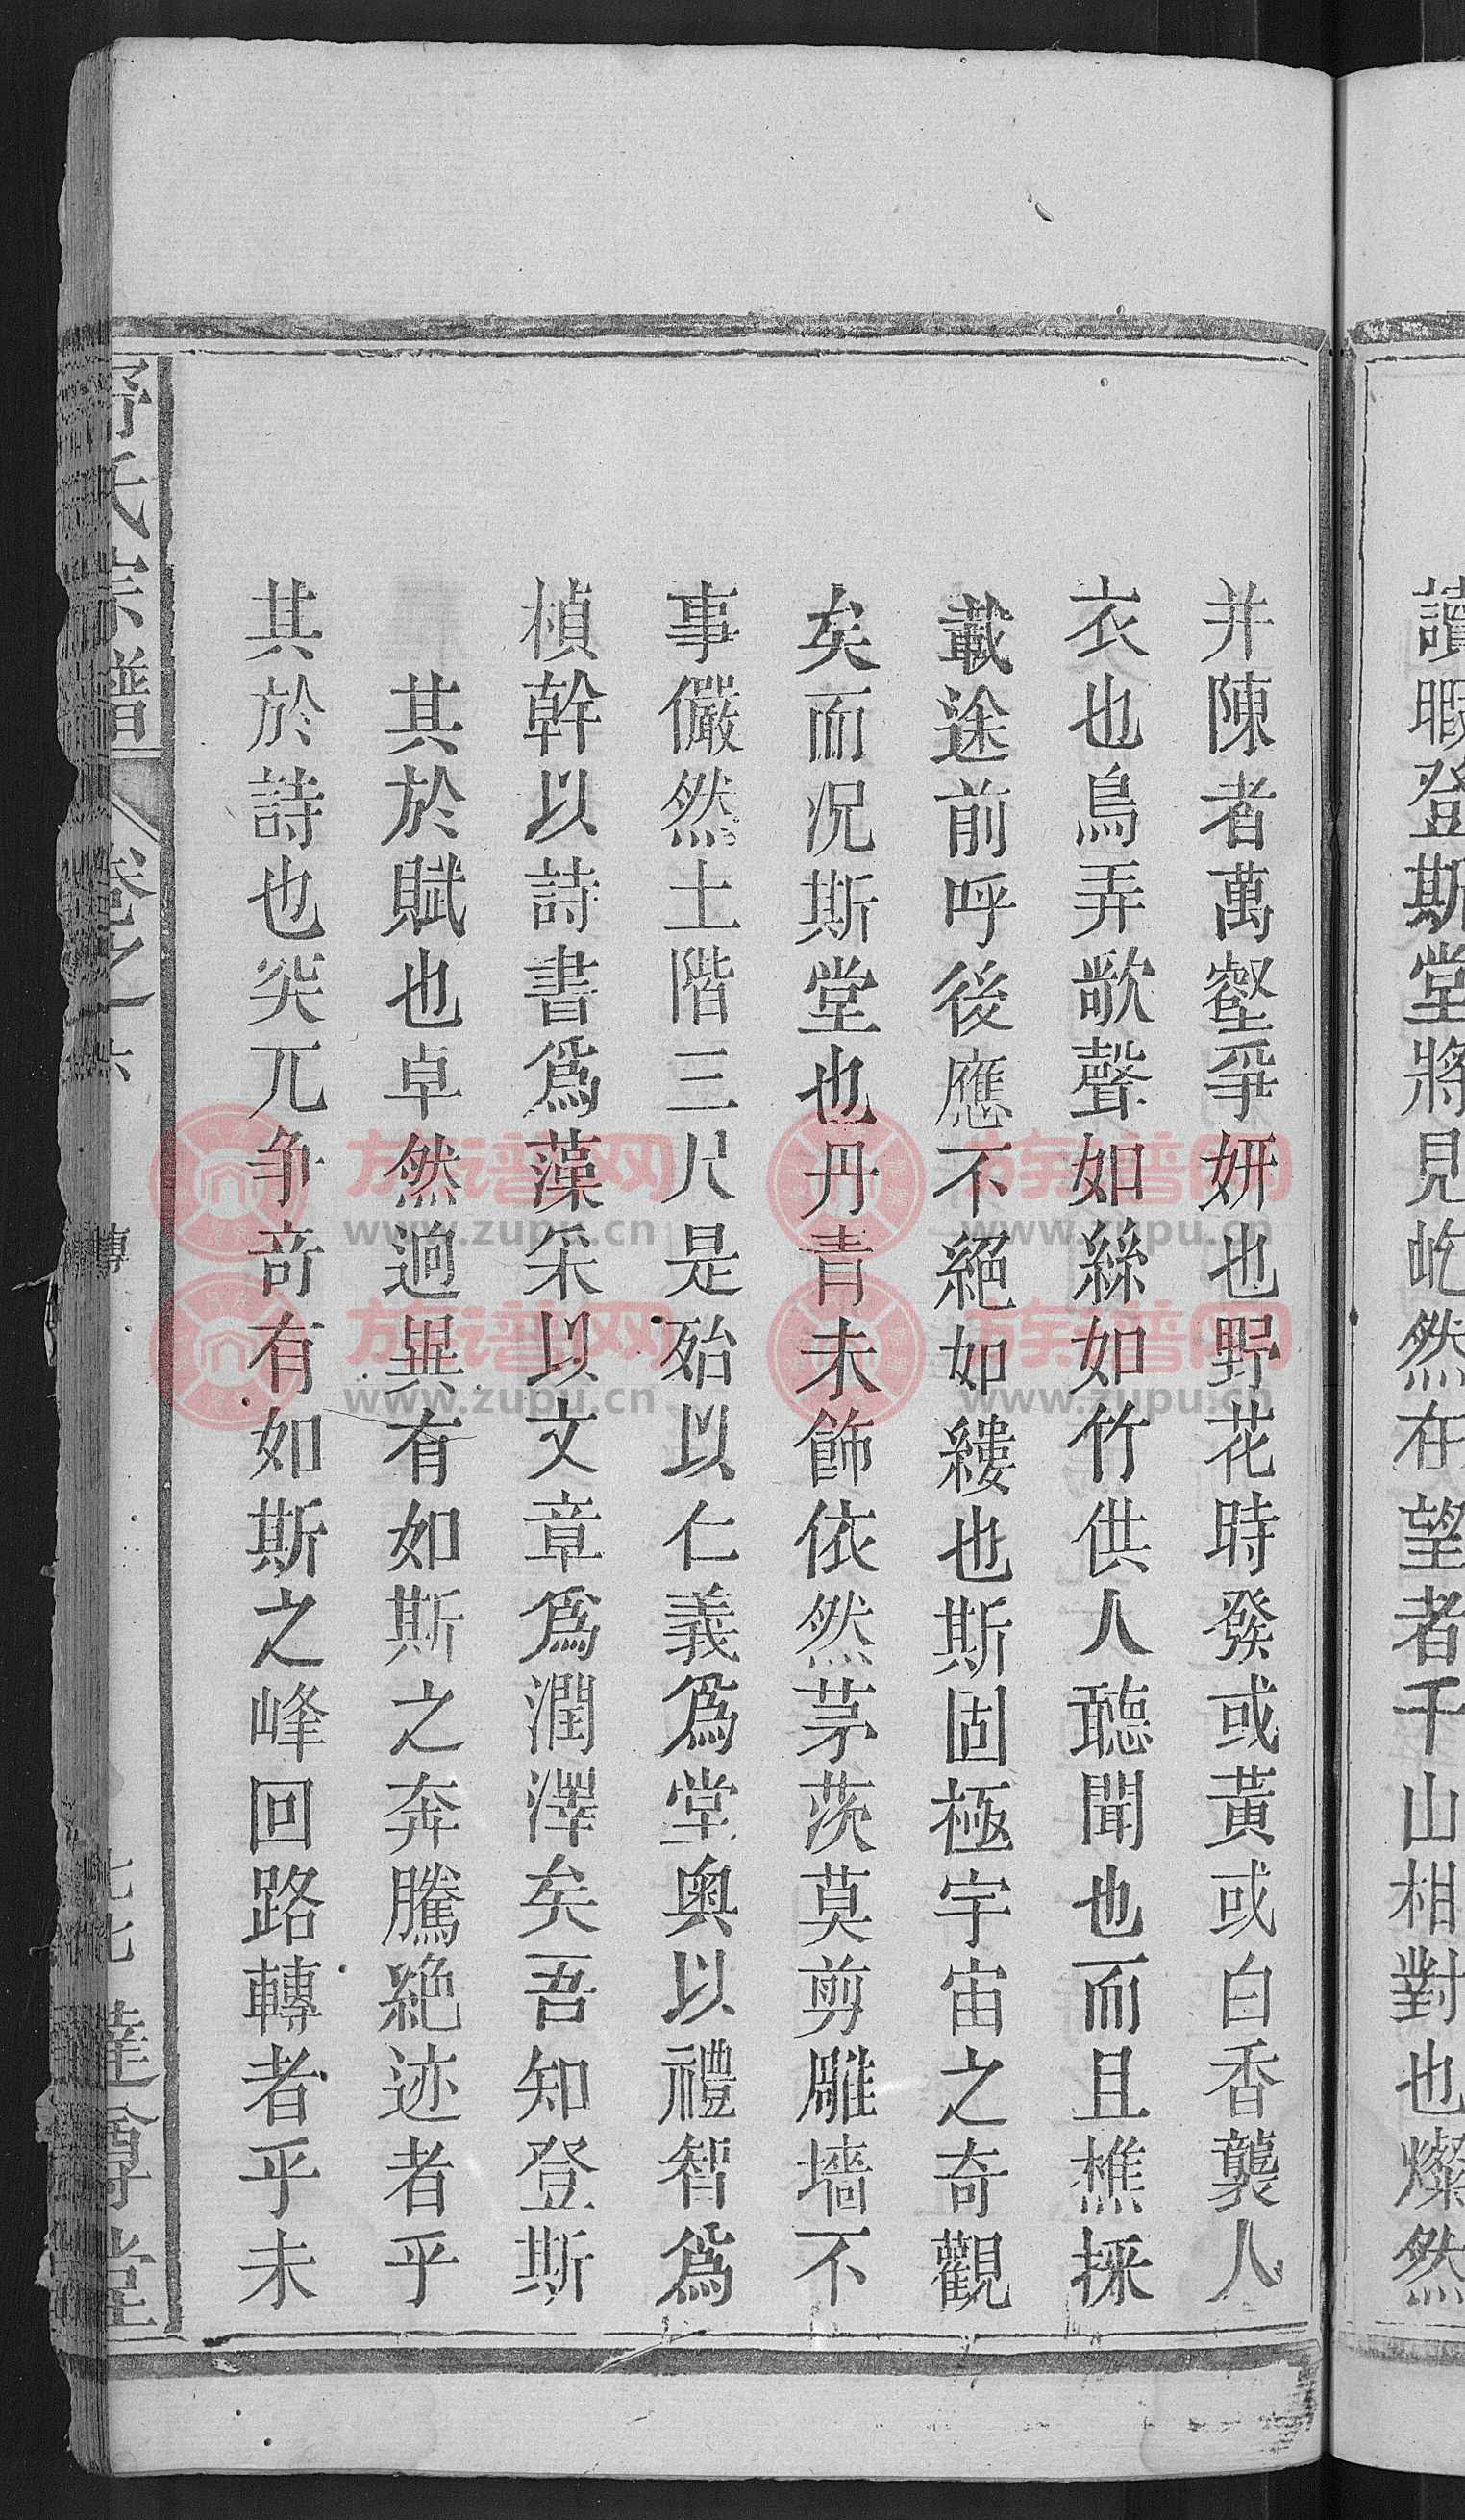 讀暇登斯堂將見屹然在望者千山相對也燦然
并陳者萬壑爭妍也野花時發或黃或白香襲人
衣也鳥弄歌聲如絲如竹供人聽聞也而且樵採
載途前呼後應不絕如縷也斯固極宇宙之奇觀
矣而况斯堂也丹青未飾依然茅茨莫剪雕墻不
事儼然土階三尺是殆以仁義爲堂奧以禮智爲
楨幹以詩書爲藻采以文章爲潤澤矣吾知登斯
其於賦也卓然逈異有如斯之奔騰絶迹者乎
其於詩也突兀争竒有如斯之峰回路轉者乎未
氏宗譜
卷之
傳
達尊堂
族谱网
www.zupu.cn
族谱网
www.zupu.cn
族谱网
www.zupu.cn
族谱网
www.zupu.cn